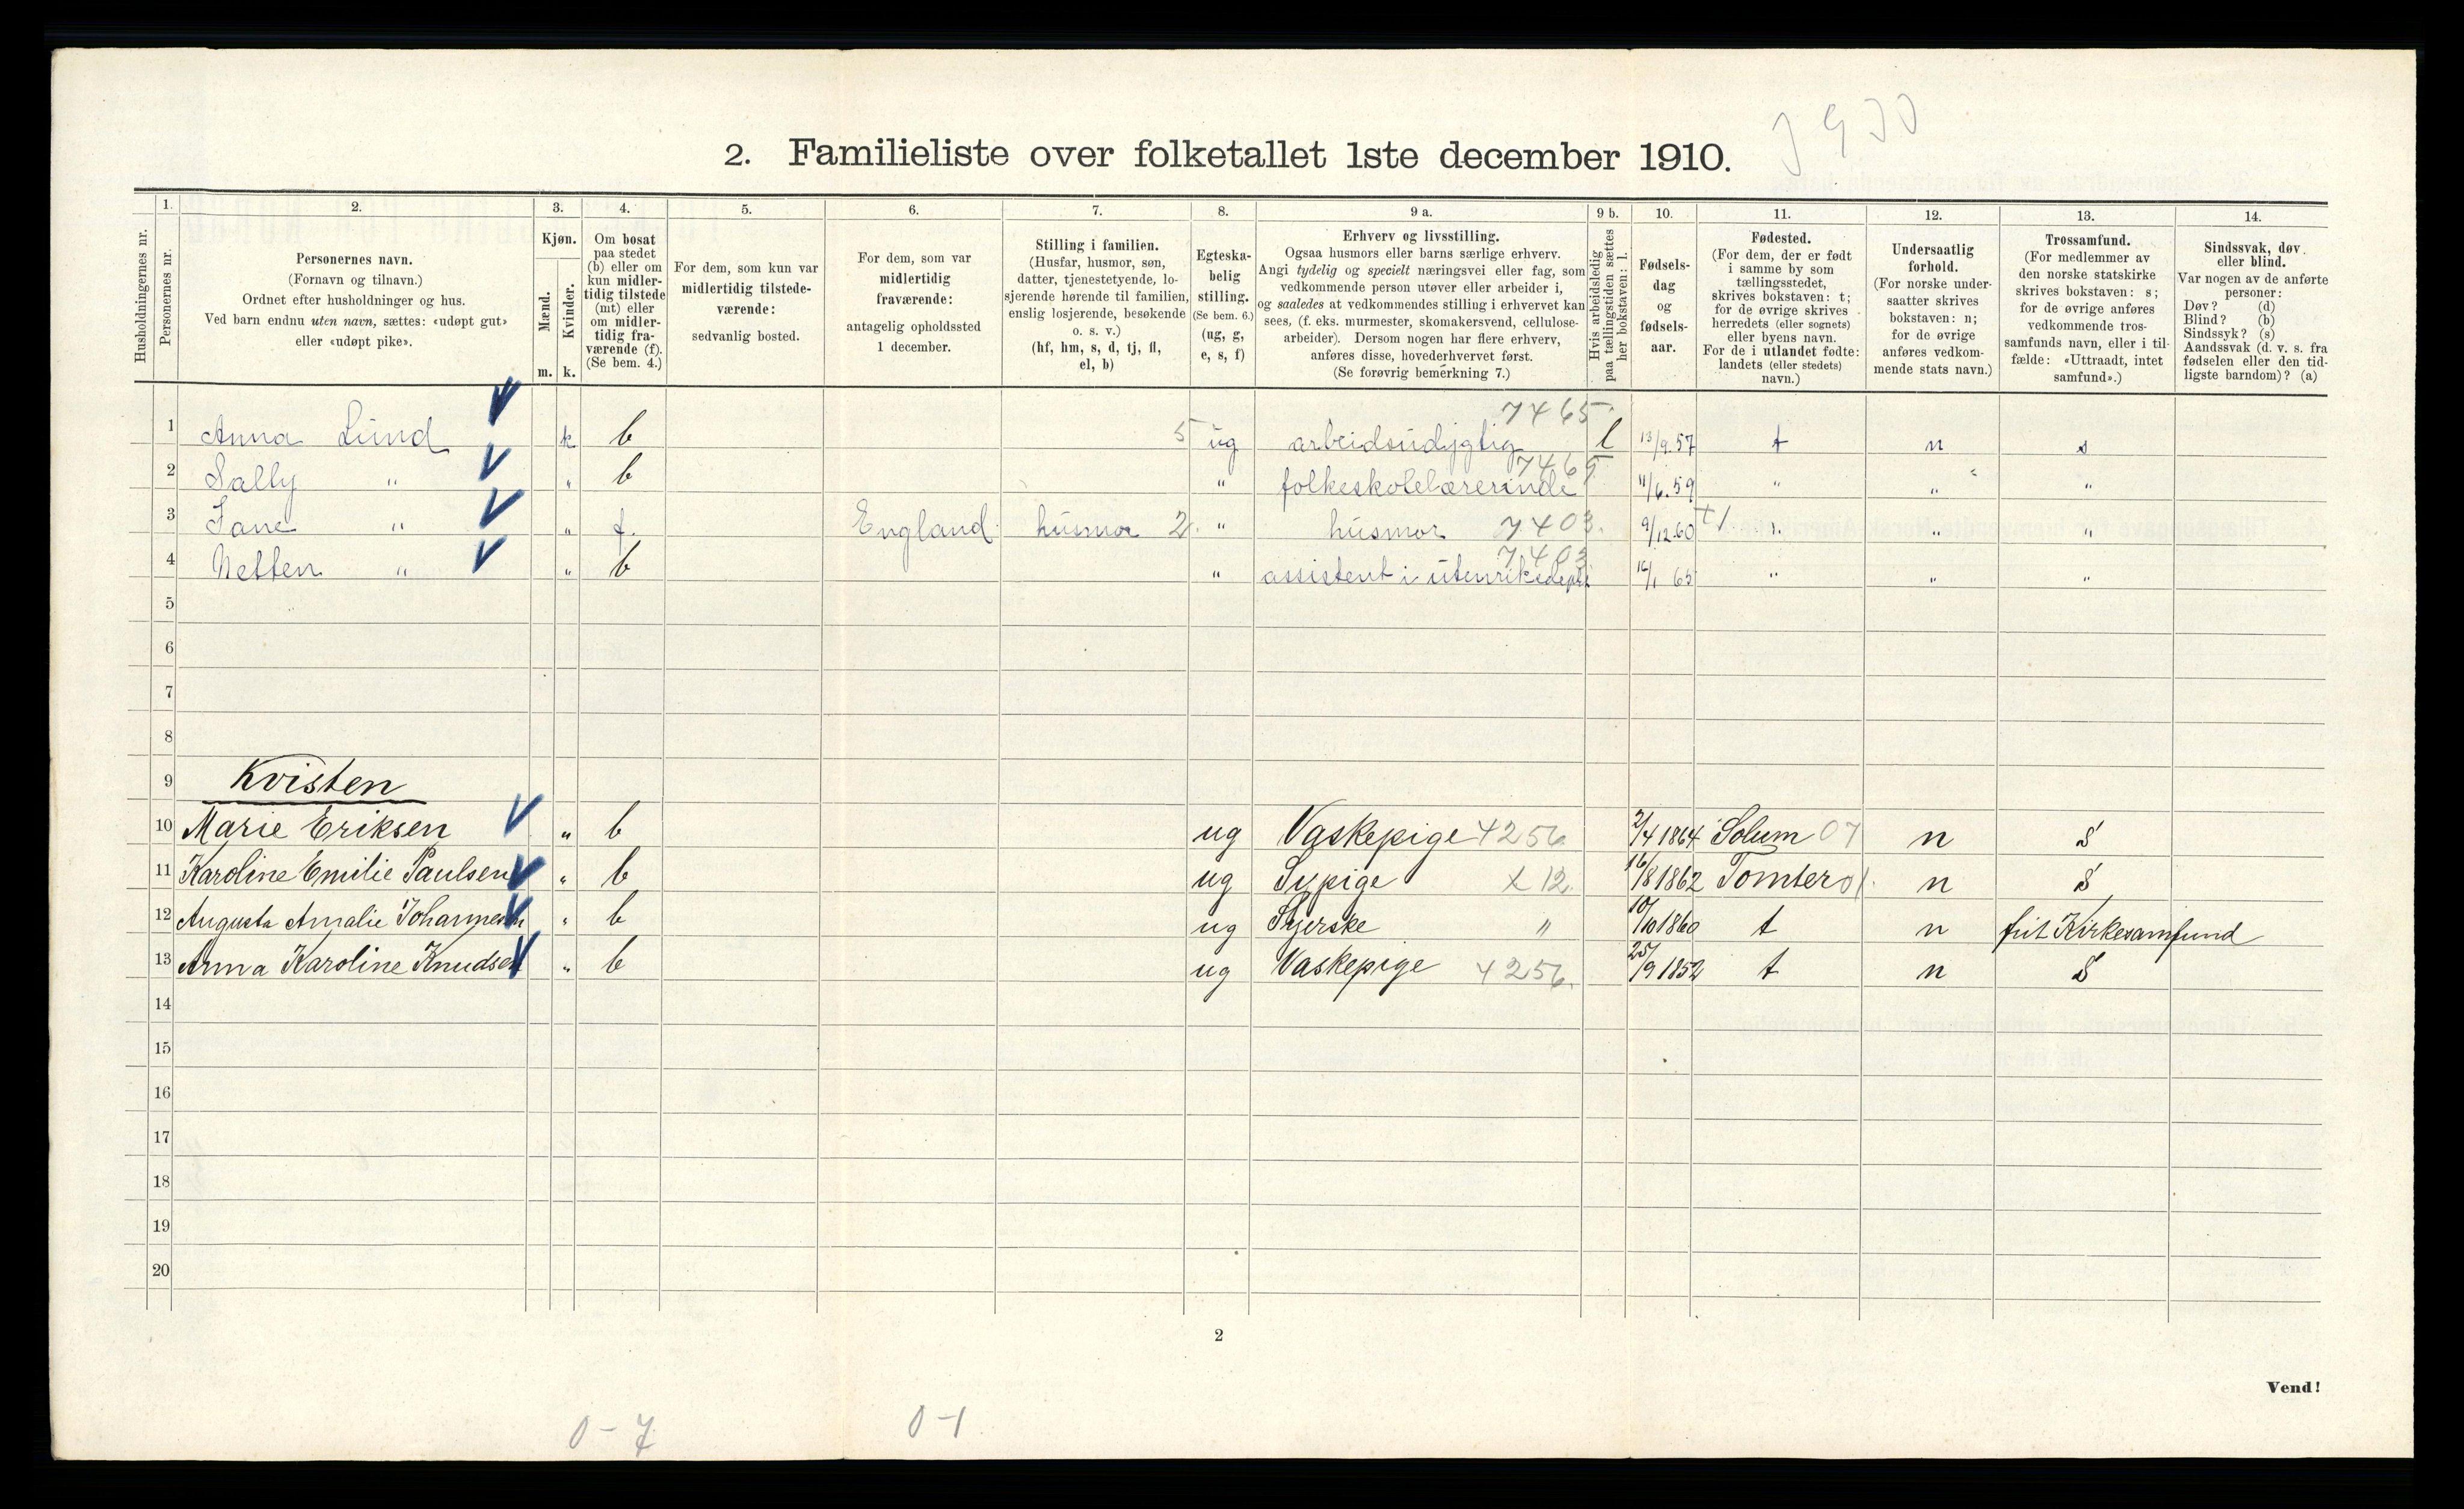 J 900
2. Familieliste over folketallet 1ste december 1910.
1. 2. 3. 4. 5. 6. 7. 8. 9 a. 9 b. 10. 11. 12. 13. 14.
Husholdningernes nr.
Personernes nr.
Personernes navn.
(Fornavn og tilnavn.)
Ordnet efter husholdninger og hus.
Ved barn endnu uten navn, sættes: «udøpt gut»
eller «udøpt pike».
Kjøn.
Mænd.
Kvinder.
m. k.
Om bosat
paa stedet
(b) eller om
kun midler-
tidig tilstede
(mt) eller
om midler-
tidig fra-
værende (f).
(Se bem. 4.)
For dem, som kun var
midlertidig tilstede-
værende:
sedvanlig bosted.
For dem, som var
midlertidig
fraværende:
antagelig opholdssted
1 december.
Stilling i familien.
(Husfar, husmor, søn,
datter, tjenestetyende, lo-
sjerende hørende til familien,
enslig losjerende, besøkende
o. s. v.)
(hf, hm, s, d, tj, fl,
el, b)
Egteska-
belig
stilling.
(Se bem. 6.)
(ug, g,
e, s, f)
Erhverv og livsstilling.
Ogsaa husmors eller barns særlige erhverv.
Angi tydelig og specielt næringsvei eller fag, som
vedkommende person utøver eller arbeider i,
og saaledes at vedkommendes stilling i erhvervet kan
sees, (f. eks. murmester, skomakersvend, cellulose-
arbeider). Dersom nogen har flere erhverv,
anføres disse, hovederhvervet først.
(Se forøvrig bemerkning 7.)
Hvis arbeidsledig
paa tællingstiden sættes
her bokstaven: l.
Fødsels-
dag
og
fødsels-
aar.
Fødested.
(For dem, der er født
i samme by som
tællingsstedet,
skrives bokstaven: t;
for de øvrige skrives
herredets (eller sognets)
eller byens navn.
For de i utlandet fødte:
landets (eller stedets)
navn.)
Undersaatlig
forhold.
(For norske under-
saatter skrives
bokstaven: n;
for de øvrige
anføres vedkom-
mende stats navn.)
Trossamfund.
(For medlemmer av
den norske statskirke
skrives bokstaven: s;
for de øvrige anføres
vedkommende tros-
samfunds navn, eller i til-
fælde: «Uttraadt, intet
samfund».)
Sindssvak, døv
eller blind.
Var nogen av de anførte
personer:
Døv? (d)
Blind? (b)
Sindssyk? (s)
Aandssvak (d. v. s. fra
fødselen eller den tid-
ligste barndom)? (a)
7465
1 Anna Lund k b 5 ug arbeidsudygtig l 13/9.57 t n s
7465
2 Sally " " b " folkeskolelærerinde 11/6.59 " " "
3 Jane " " f. England husmor 2. " husmor 7403. 9/12.60 " " "
7403
4 Netten " " b " assistent i utenriksdept 16/1 65 " " "
5
6
7
8
9 Kvisten
10 Marie Eriksen " b ug Vaskepige 4256 2/4 1864 Solum 07 n S
11 Karoline Emilie Paulsen " b ug Sypige X 12. 16/8 1862 Tomter 01. n S
12 Augusta Amalie Johannesen " b ug Syerske " 10/10 1860 t n frit Kirkesamfund
13 Anna Karoline Knudsen " b ug Vaskepige 4256. 25/9 1852 t n S
14
15
16
17
18
19
20
2
Vend!
0-7 0-1